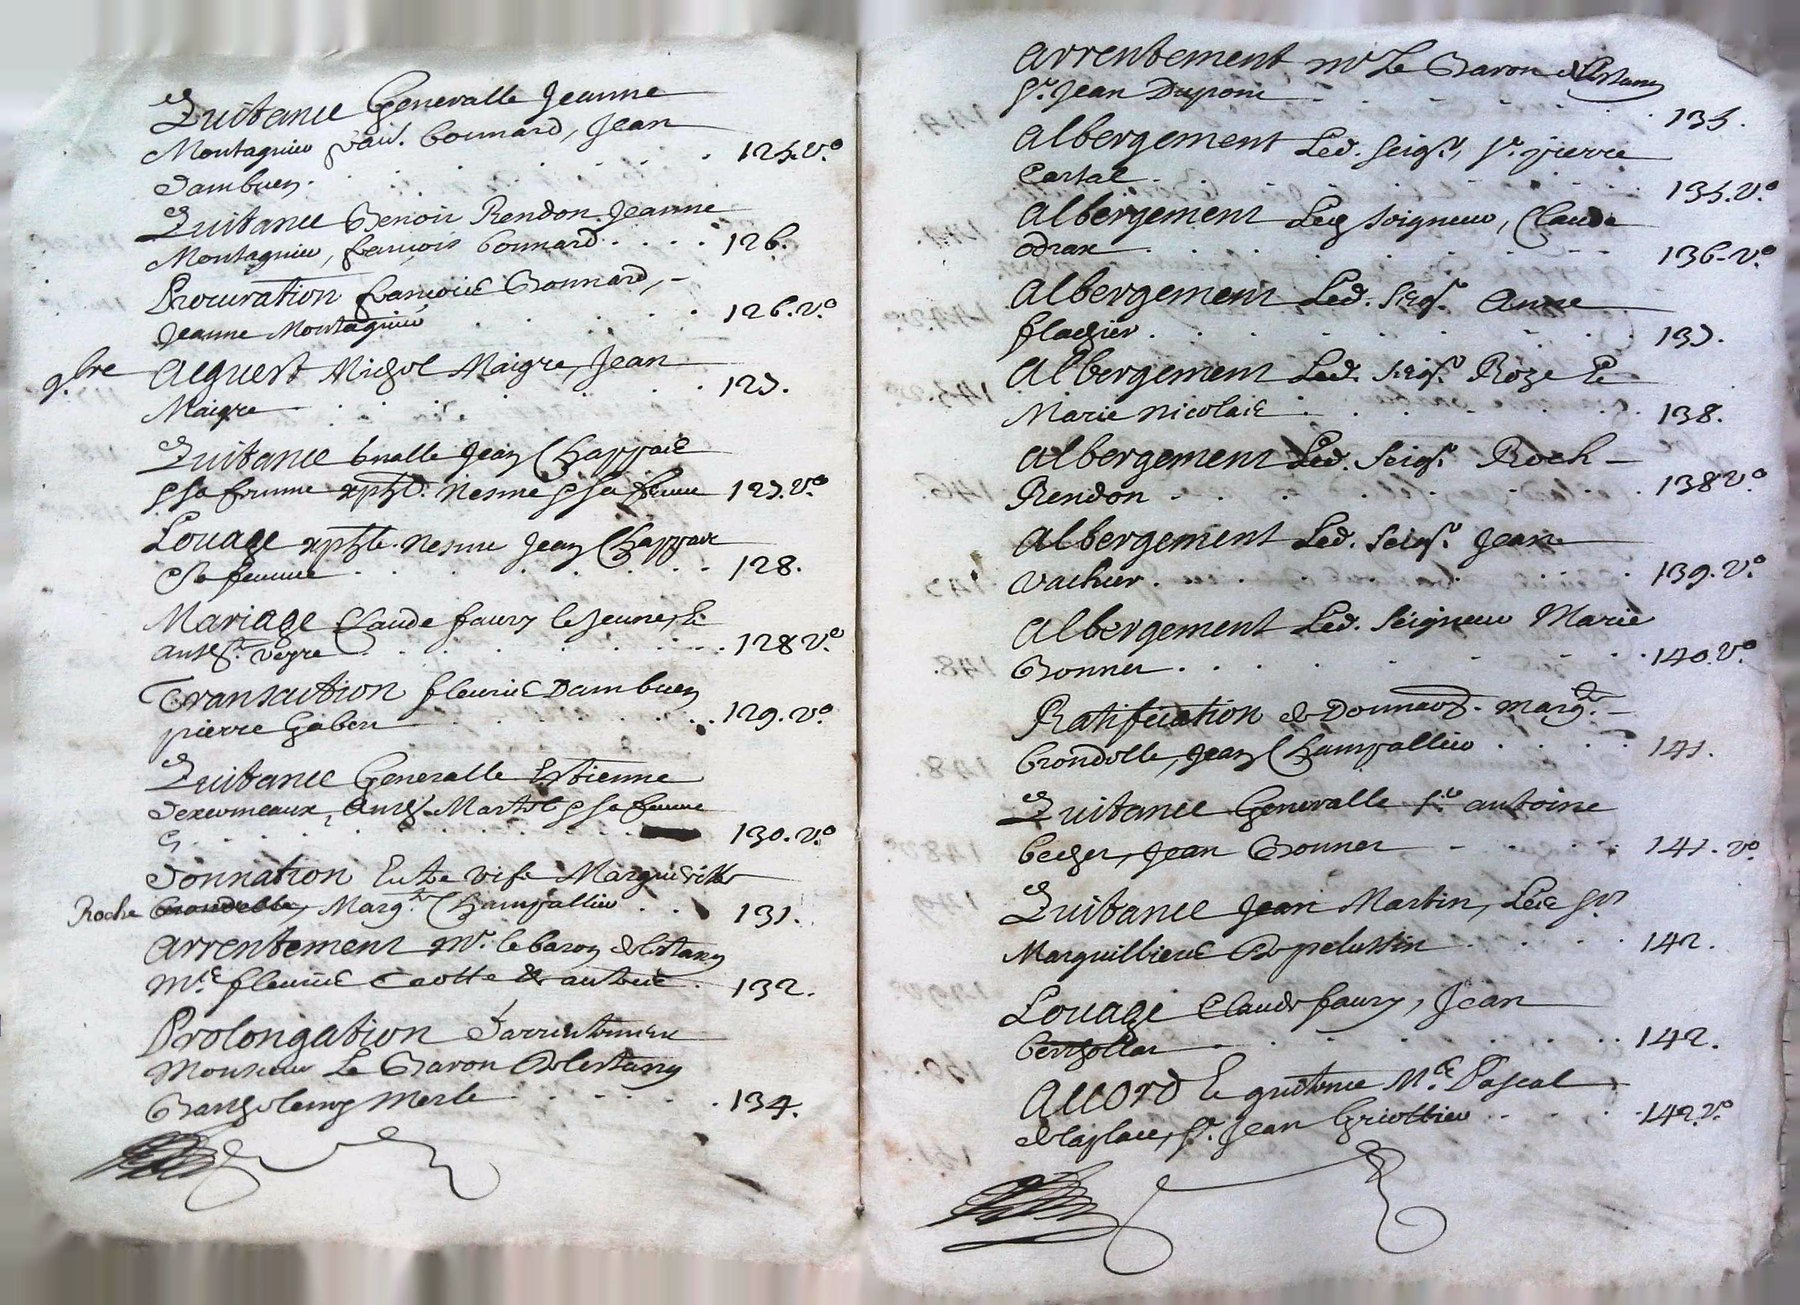 Quitance Generalle Jeanne
Montagnieu fran. bonnard, Jean
Dambuen. 125. v.o
Quitance Benoit Rendon Jeanne
Montagnieu, francois bonnard 126.
Procuration francoise Bonnard,
Jeanne Montagnieu 126. v.o
9.bre Acquest Michel Maigre, Jean
Maigre 127.
Quitance gnalle Jean Chappaix
& sa femme xphle. Nesme & sa femme 127. v.o
Louage xphle. Nesme Jean Chappaix
& sa femme 128.
Mariage Claude faury le Jeune, &
veyre 128 v.o
Transaction fleurie Dambuen
pierre Gaben 129. v.o
Quitance Generalle Estienne
& sa femme
130. v.o
Donnation Entre vifs Margueritte
Roche Marg.te Champallieu 131.
Arrentement mr. le baron de Lestang
M.e fleurie & autre 132.
Prolongation Darrentement
Monsieur Le Baron de Lestang
Barthelemy Merle 134.
Arrentement mr Le Baron de Lestang
Sr. Jean Dupont 135.
Albergement Led. seigr. Sr. pierre
Cartal 135. v.o
Albergement Led seigneur, Claude
odrax 136. v.o
Albergement Led. seigr. Anne
flachier 137.
Albergement Led. seigr. Roze &
Marie Nicolas 138.
Albergement Led. seigr. Roch
Rendon 138 v.o
Albergement Led. seigr. Jean
vachier 139. v.o
Albergement Led. seigneur Marie
Bonner 140. v.o
Ratification de Donnaon. marg.te
brondelle, Jean Champallieu 141.
Quitance Generalle Sr. antoine
becher, Jean Bonner 141. v.o
Quitance Jean Martin, Les Srs
Marguilliers de pelussin 142.
Louage Claude faury, Jean
bertholla 142.
Accord & quitance M.e Pascal
delaplace, Sr. Jean Griottier 142 v.o